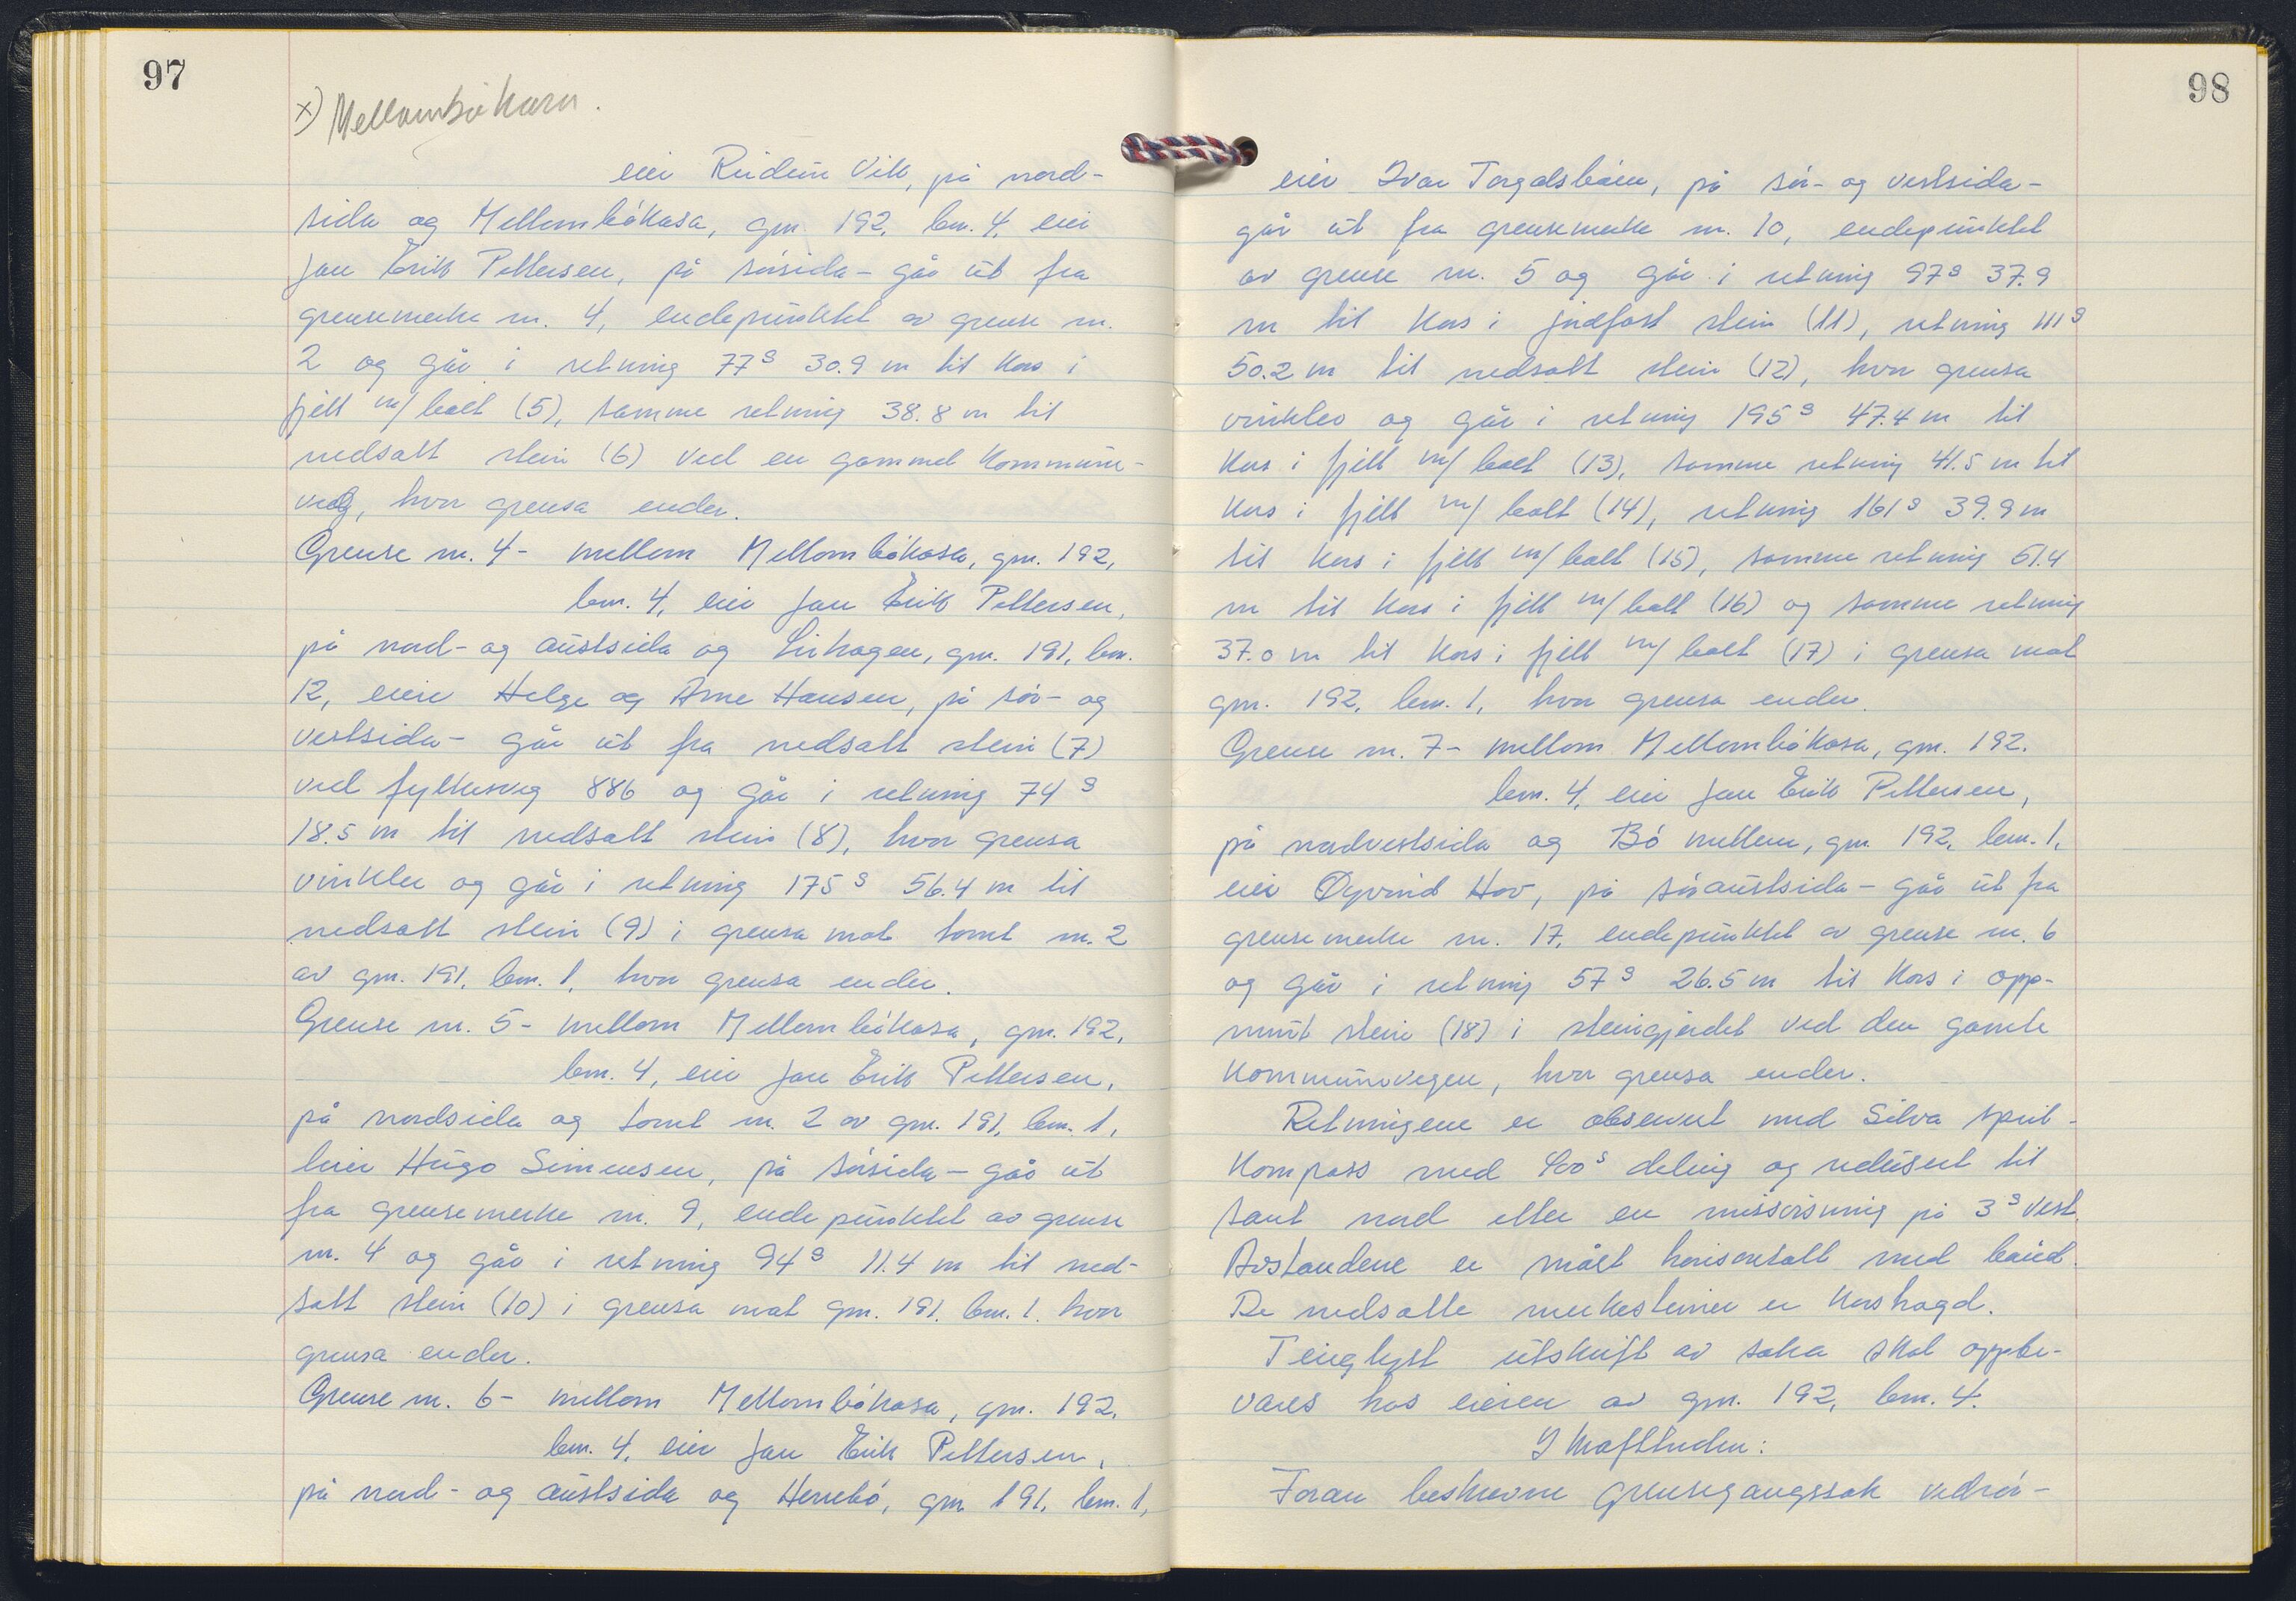 97
x) Mellombökasa.
eier Reidun Vik, på nord-
sida og Mellombökasa, gnr. 192, bnr. 4, eier
Jan Erik Pettersen, på sörsida - går ut fra
grensemerke nr. 4, endepunktet av grense nr.
2 og går i retning 77g 30.9 m til kors i
fjell m/bolt (5), samme retning 38.8 m til
nedsatt stein (6) ved en gammel kommune-
veg, hvor grensa ender.
Grense nr. 4 - mellom Mellombökasa, gnr. 192,
bnr. 4, eier Jan Erik Pettersen,
på nord- og austsida og Lirhagen, gnr. 191, bnr.
12, eiere Helge og Arne Hansen, på sör- og
vestsida - går ut fra nedsatt stein (7)
ved fylkesveg 886 og går i retning 74g
18.5 m til nedsatt stein (8), hvor grensa
vinkler og går i retning 175g 56.4 m til
nedsatt stein (9) i grensa mot tomt nr. 2
av gnr. 191, bnr. 1, hvor grensa ender.
Grense nr. 5 - mellom Mellombökasa, gnr. 192,
bnr. 4, eier Jan Erik Pettersen,
på nordsida og tomt nr. 2 av gnr. 191, bnr. 1,
eier Hugo Simensen, på sörsida - går ut
fra grensemerke nr. 9, endepunktet av grense
nr. 4 og går i retning 94g 11.4 m til ned-
satt stein (10) i grensa mot gnr. 191, bnr. 1. hvor
grensa ender.
Grense nr. 6 - mellom Mellombökasa, gnr. 192,
bnr. 4, eier Jan Erik Pettersen,
på nord- og austsida og Herrebö, gnr. 191, bnr. 1,
98
eier Ivar Torgalsböen, på sör- og vestsida -
går ut fra grensemerke nr. 10, endepunktet
av grense nr. 5 og går i retning 97g 37.9
m til kors i jordfast stein (11), retning 111g
50.2 m til nedsatt stein (12), hvor grensa
vinkler og går i retning 195g 47.4 m til
kors i fjell m/ bolt (13), samme retning 41.5 m til
kors i fjell m/ bolt (14), retning 161g 39.9 m
til kors i fjell m/ bolt (15), samme retning 61.4
m til kors i fjell m/ bolt (16) og samme retning
37.0 m til kors i fjell m/ bolt (17) i grensa mot
gnr. 192, bnr. 1, hvor grensa ender.
Grense nr. 7 - mellom Mellombökasa, gnr. 192.
bnr. 4, eier Jan Erik Pettersen,
på nordvestsida og Bö mellem, gnr. 192, bnr. 1,
eier Øyvind Hov, på söraustsida - går ut fra
grensemerke nr. 17, endepunktet av grense nr. 6
og går i retning 57g 26.5 m til kors i opp-
murt stein (18) i steingjerdet ved den gamle
kommunevegen, hvor grensa ender.
Retningene er observert med Silva speil-
kompass med 400g deling og redusert til
sant nord etter en missvisning på 3g vest.
Avstandene er målt horisontalt med bånd.
De nedsatte merkesteiner er korshogd.
Tinglyst utskrift av saka skal oppbe-
vares hos eieren av gnr. 192, bnr. 4.
I krafttreden:
Foran beskrevne grensegangssak vedrör-